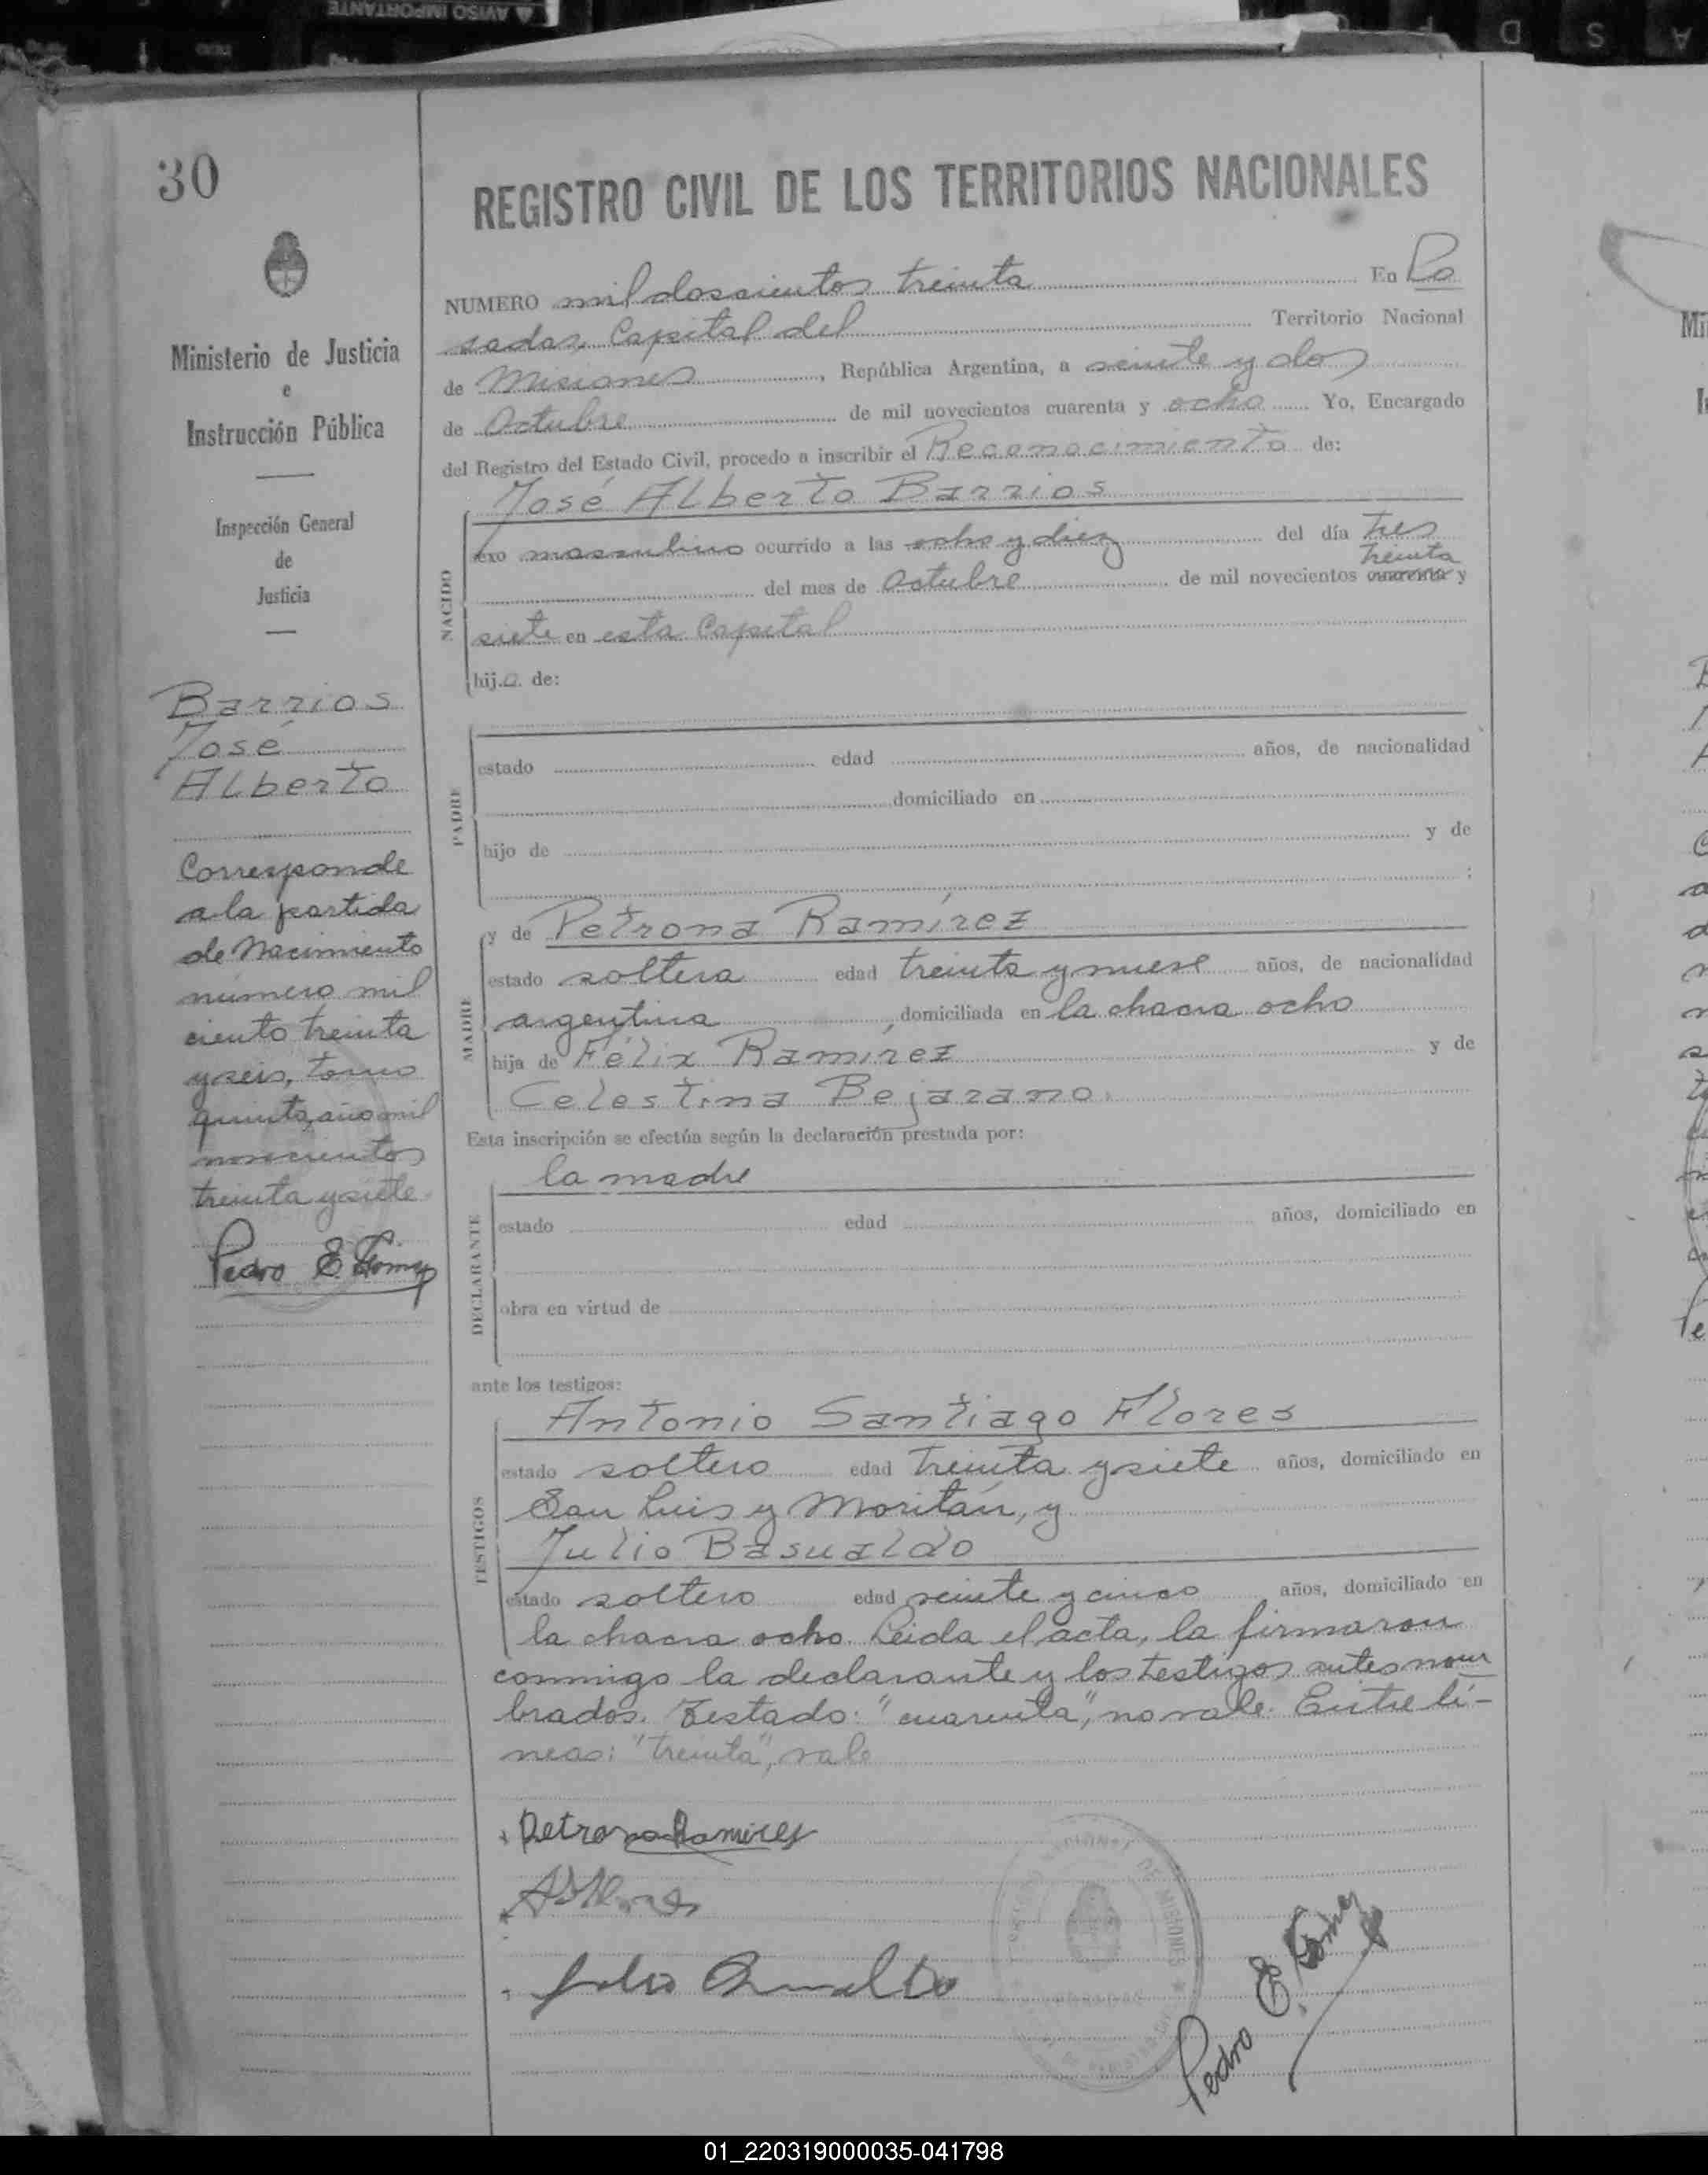 AVISO IMPORTANTE
30
REGISTRO CIVIL DE LOS TERRITORIOS NACIONALES
Ministerio de Justicia
e
Instrucción Pública
Inspección General
de
Justicia
Barrios
José
Alberto
Corresponde
a la partida
de Nacimiento
numero mil
ciento treinta
y seis, tomo
quinto, año mil
novecientos
treinta y siete
Pedro E. Gómez
NUMERO mil doscientos treinta En Po
sadas, Capital del Territorio Nacional
de Misiones, República Argentina, a veinte y dos
de Octubre de mil novecientos cuarenta y ocho Yo, Encargado
del Registro del Estado Civil, procedo a inscribir el Reconocimiento de:
José Alberto Barrios
NACIDO
sexo masculino ocurrido a las ocho y diez del día tres
treinta
del mes de Octubre de mil novecientos cuarenta y
siete en esta Capital
hijo de:
PADRE
estado edad años, de nacionalidad
domiciliado en
hijo de y de
;
y de Petrona Ramírez
MADRE
estado soltera edad treinta y nueve años, de nacionalidad
argentina, domiciliada en la chacra ocho
hija de Félix Ramírez y de
Celestina Bejarano.
Esta inscripción se efectúa según la declaración prestada por:
la madre
DECLARANTE
estado edad años, domiciliado en
obra en virtud de
ante los testigos:
Antonio Santiago Flores
TESTIGOS
estado soltero edad treinta y siete años, domiciliado en
San Luis y Moritán, y
Julio Basualdo
estado soltero edad veinte y cinco años, domiciliado en
la chacra ocho. Leida el acta, la firmaron
conmigo la declarante y los testigos antes nom
brados. Testado: "cuarenta", no vale. Entre lí-
neas: "treinta", vale
Petrona Ramires
Pedro E. Gómez
DE MISIONES
01_220319000035-041798